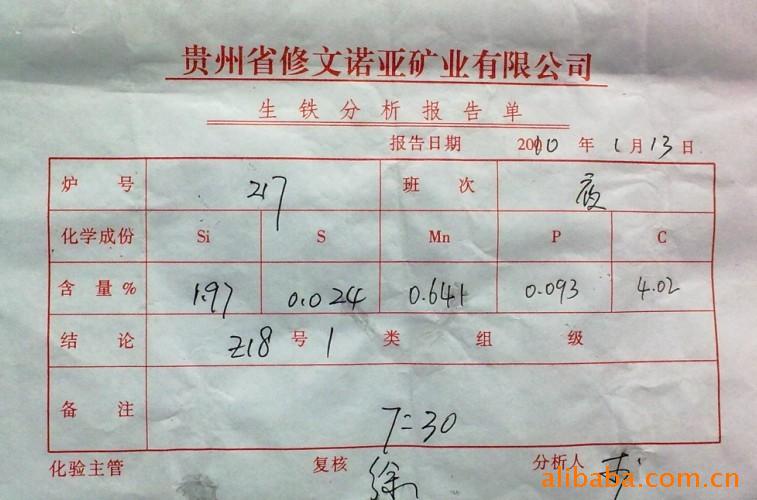 贵州省修文诺亚矿业有限公司
生铁分析报告单
报告日期 2010年1月13日
炉号 217 班次 夜
化学成份 Si S Mn P C
含量% 1.97 0.024 0.641 0.093 4.02
结论 Z18号1类组级
备注 7=30
化验主管 复核 徐 分析人
alibaba.com.cn